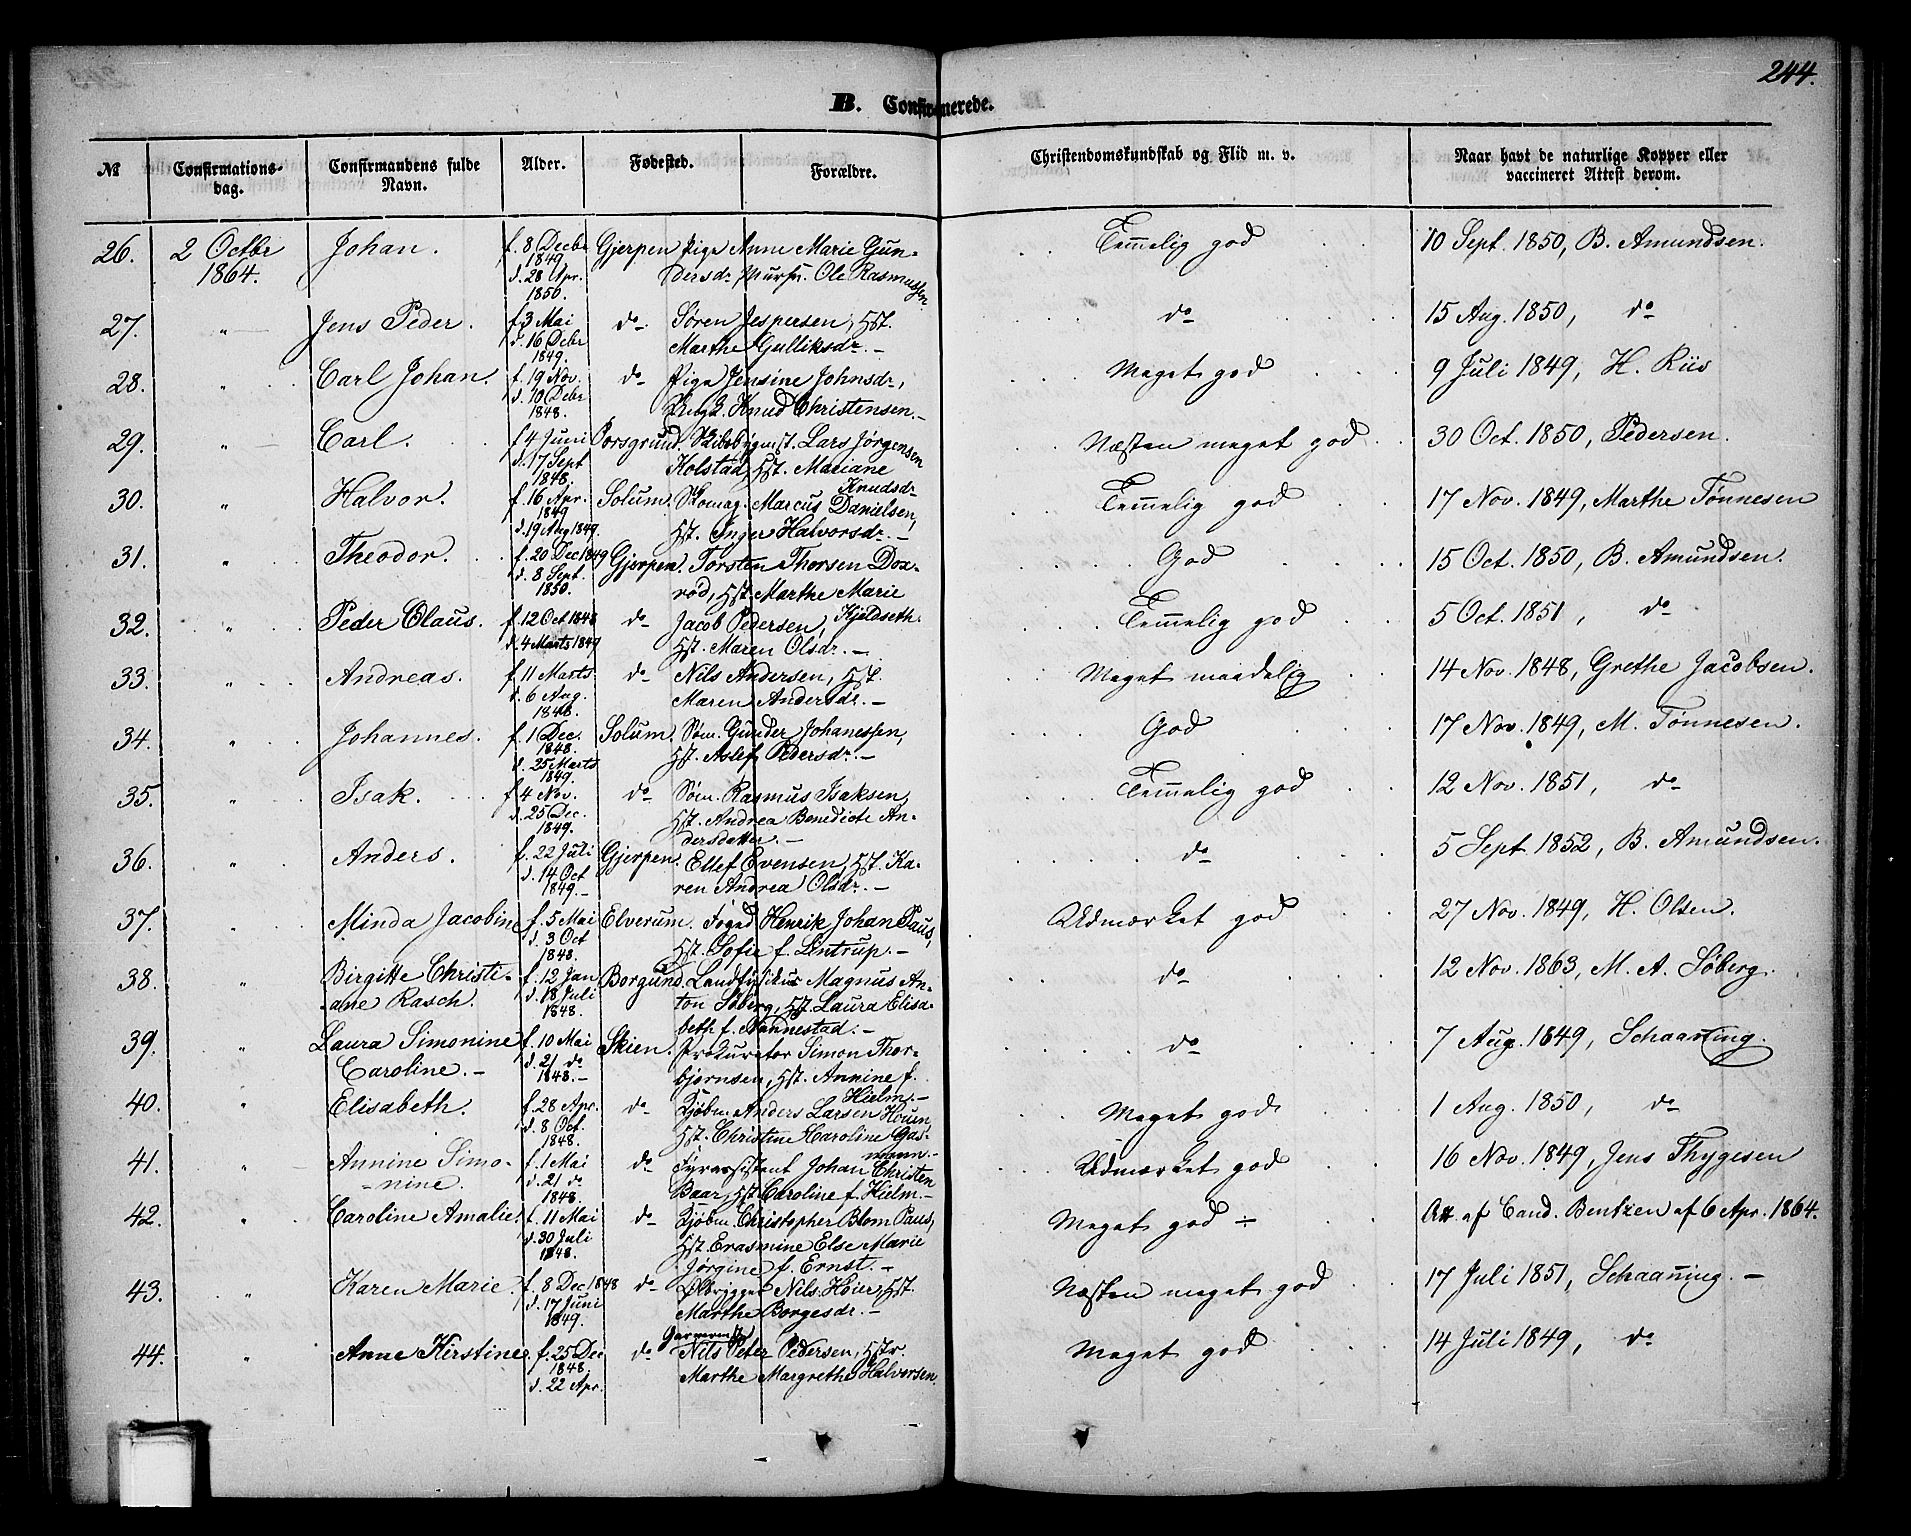 244.
B. Confirmerede.
№ Confirmations- Confirmandens fulde Alder. Fødested. Forældre. Christendomskundskab og Flid m. v. Naar havt de naturlige Kopper eller
dag. Navn. vaccineret Attest derom.
26. 2 Octbr Johan. f. 8 Decbr Gjerpen Pige Anne Marie Gun- Temmelig god 10 Sept. 1850, B. Amundsen.
1864. 1849 dersdr, Murſv. Ole Rasmussen
d. 28 Apr.
1850.
27. " Jens Peder. f. 3 Mai do Søren Jespersen, Hst. do 15 Aug. 1850, do
d. 16 Debr Marthe Gulliksdr. -
1849.
28. " Carl Johan. f. 19 Nov. do Pige Jensine Johnsdr, Meget god 9 Juli 1849, H. Riis
d. 10 Debr Ungk. Knud Christensen. -
1848.
29. " Carl. f. 4 Juni Porsgrund. Skibsbygmst. Lars Jørgensen Næsten meget god 30 Oct. 1850, Pedersen.
d. 17 Sept Kolstad, Hst. Mariane
1848. Knudsdr
30. " Halvor. f. 16 Apr. Solum. Skomag. Marcus Danielsen, Temmelig god 17 Nov. 1849, Marthe Tønnesen
1849
d. 19 Aug 1849. Hst. Inger Halvorsdr. -
31. " Theodor. f. 20 Dec 1849 Gjerpen. Torsten Thorsen Dox- God 15 Oct. 1850, B. Amundsen.
d. 8 Sept. rød, Hst. Marthe Marie
1850. Kjeldseth.
32. " Peder Olaus. f. 12 Oct 1848 do Jacob Pedersen, Temmelig god 5 Oct. 1851, do
d. 4 Marts 1849 Hst. Maren Olsdr. -
33. " Andreas. f. 11 Marts do Nils Andersen, Hst. Meget maadelig 14 Nov. 1848, Grethe Jacobsen.
d. 6 Aug. Maren Andersdr. -
1848.
34. " Johannes. f. 1 Dec. Solum. Søm. Gunder Johanessen, God 17 Nov. 1849, M. Tønnesen.
1848. Hst. Aslef Pedersdr. -
d. 25 Marts
1849.
35. " Isak. f. 4 Nov. do Søm. Rasmus Isaksen, Temmelig god 12 Nov. 1851, do
d. 25 Dec. Hst. Andrea Benedicte An-
1849. dersdatter. -
36. " Anders. f. 22 Juli Gjerpen. Ellef Evensen, Hst. Ka- do 5 Sept 1852, B. Amundsen.
d. 14 Oct ren Andrea Olsdr. -
1849. -
37. " Minda Jacobine f. 5 Mai Elverum. Foged Henrik Johan Paus, Udmærket god 27 Nov. 1849, H. Olsen.
d. 3 Oct Hst. Sofie f. Lintrup. -
1848.
38. " Birgitte Christi- f. 12 Jan Borgund. Landfysikus Magnus An- do 12 Nov. 1863, M. A. Søberg.
ane Rasch. d. 18 Juli ton Søberg, Hst. Laura Elisa-
1848. beth f. Nannestad. -
39. " Laura Simonine f. 10 Mai Skien. Prokurator Simon Thor- do 7 Aug. 1849, Schaanning.
Caroline. - d. 21 do bjørnsen, Hst. Annine f.
1848. - Hielm. -
40. " Elisabeth. f. 28 Apr. do Kjøbm. Anders Larsen Houen, Meget god 1 Aug. 1850, do
d. 8 Oct. Hst. Christine Karoline Gas-
1848. mann. -
41. " Annine Simo- f. 1 Mai do Fyrassistent Johan Christen Udmærket god 16 Nov. 1849, Jens Thygesen
-nine. d. 21 do Baar, Hst. Caroline f. Hielm. -
1848.
42. " Caroline Amalie. f. 11 Mai do Kjøbm. Christopher Blom Paus, Meget god ÷ Att. af Cand. Bentzen af 6 Apr. 1864.
d. 30 Juli Hst. Erasmine Else Marie
1848. Jørgine f. Ernst. -
43. " Karen Marie. f. 8 Dec. 1848 do Ølbrygger Nils Høier, Hst. Næsten meget god 17 Juli 1851, Schaanning. -
d. 17 Juni Marthe Borgesdr. -
1849. Garvermst.
44. " Anne Kirstine. f. 25 Dec do Nils Peter Pedersen, Hstr. Meget god 14 Juli 1849, do
1848. Marthe Margrethe Halvorsen.
d. 22 Apr.